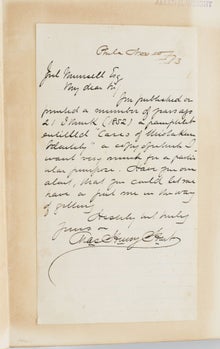 Phila Nov 10 / 73
Joel Munsell Esq
My dear Sir,
You published or
printed a number of years ago
I think (1852) a pamphlet
entitled "Cases of Mistaken
Identity" a copy of which I
want very much for a partic
ular purpose. Have you one
about, that you could let me
have or put me in the way
of getting
Yours
Chas Henry Hart